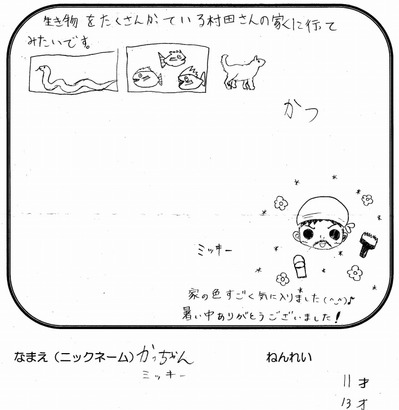 生き物をたくさんかっている村田さんの家に行って
みたいです。
かつ
ミッキー
家の色すごく気に入りました(^_^)♪
暑い中ありがとうございました!
なまえ(ニックネーム) かっちゃん
ミッキー
ねんれい
11才
13才